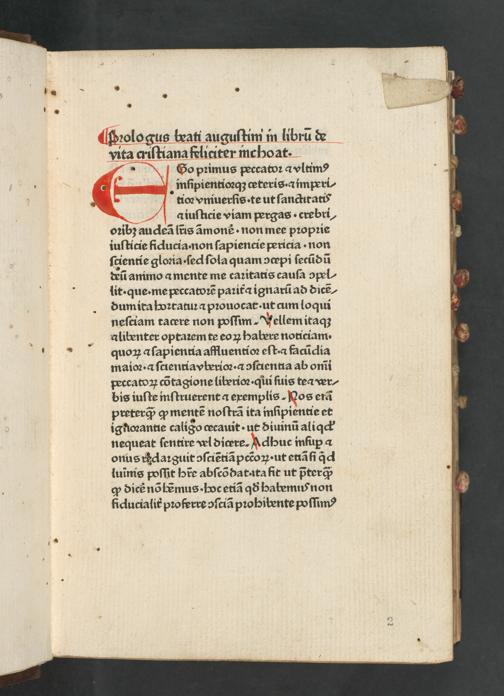 Prologus beati augustini in librū de
vita cristiana feliciter inchoat.
EGo primus peccator ⁊ vltimꝰ
insipientiorqꝫ ceteris · ⁊ imperi
tior vniuersis · te ut sanctitatꝭ
⁊ iusticie viam pergas · crebri⸗
oribꝫ audeā lr̄is āmonē · non mee proprie
iusticie fiducia · non sapiencie pericia · non
scientie gloria · sed sola quam ꝯcepi secūdū
deū animo ⁊ mente me caritatis causa ꝯpel⸗
lit · que · me peccatorē parit̄ ⁊ ignarū ad dicē⸗
dum ita hortatur ⁊ prouocat · ut cum loqui
nesciam tacere non possim · Vellem itaqꝫ
⁊ libenter optarem te eoꝝ habere noticiam ·
quoꝝ ⁊ sapientia affluentior est · ⁊ facūdia
maior · ⁊ scientia vberior · ⁊ ꝯscientia ab oīni
peccatoꝝ cōtagione liberior · qui suis te ⁊ ver⸗
bis iuste instruerent ⁊ exemplis · Nos etā
preterꝙ̄ ꝙ mentē nostrā ita insipientie et
ignorantie caligo cecauit · ut diuinū aliqd̓
nequeat sentire vel dicere · Adhuc insuꝑ ⁊
onus redarguit ꝯsciētiā pctōꝝ · ut etiā si qd̓
luminis possit hr̄e abscōdat · ita fit ut p̄terꝙ̄
ꝙ dicē nō hēmus · hoc etiā qd̓ habemus non
fiducialit̄ proferre ꝯsciā prohibente possimꝰ
2